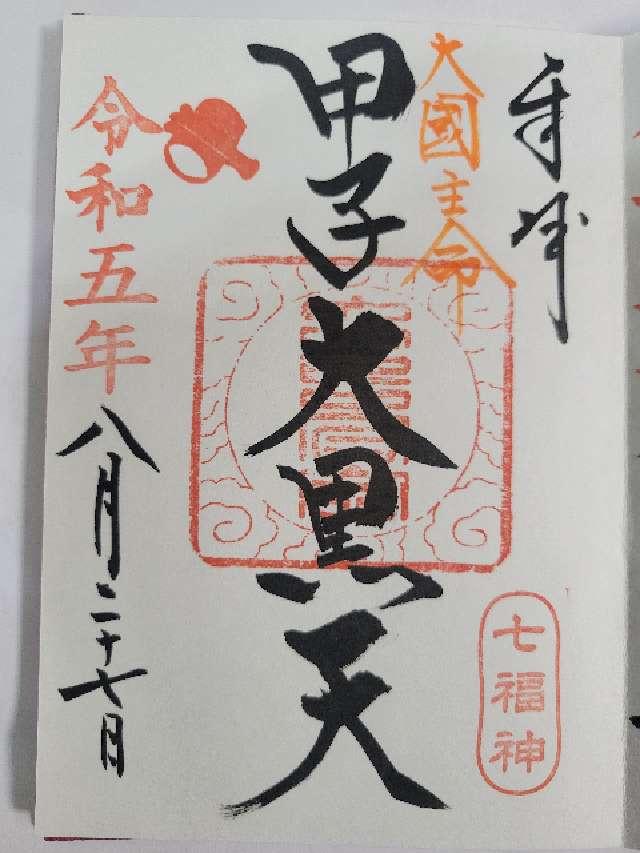 奉拝
大國主命
甲子大黒天
七福神
令和五年
八月二十七日